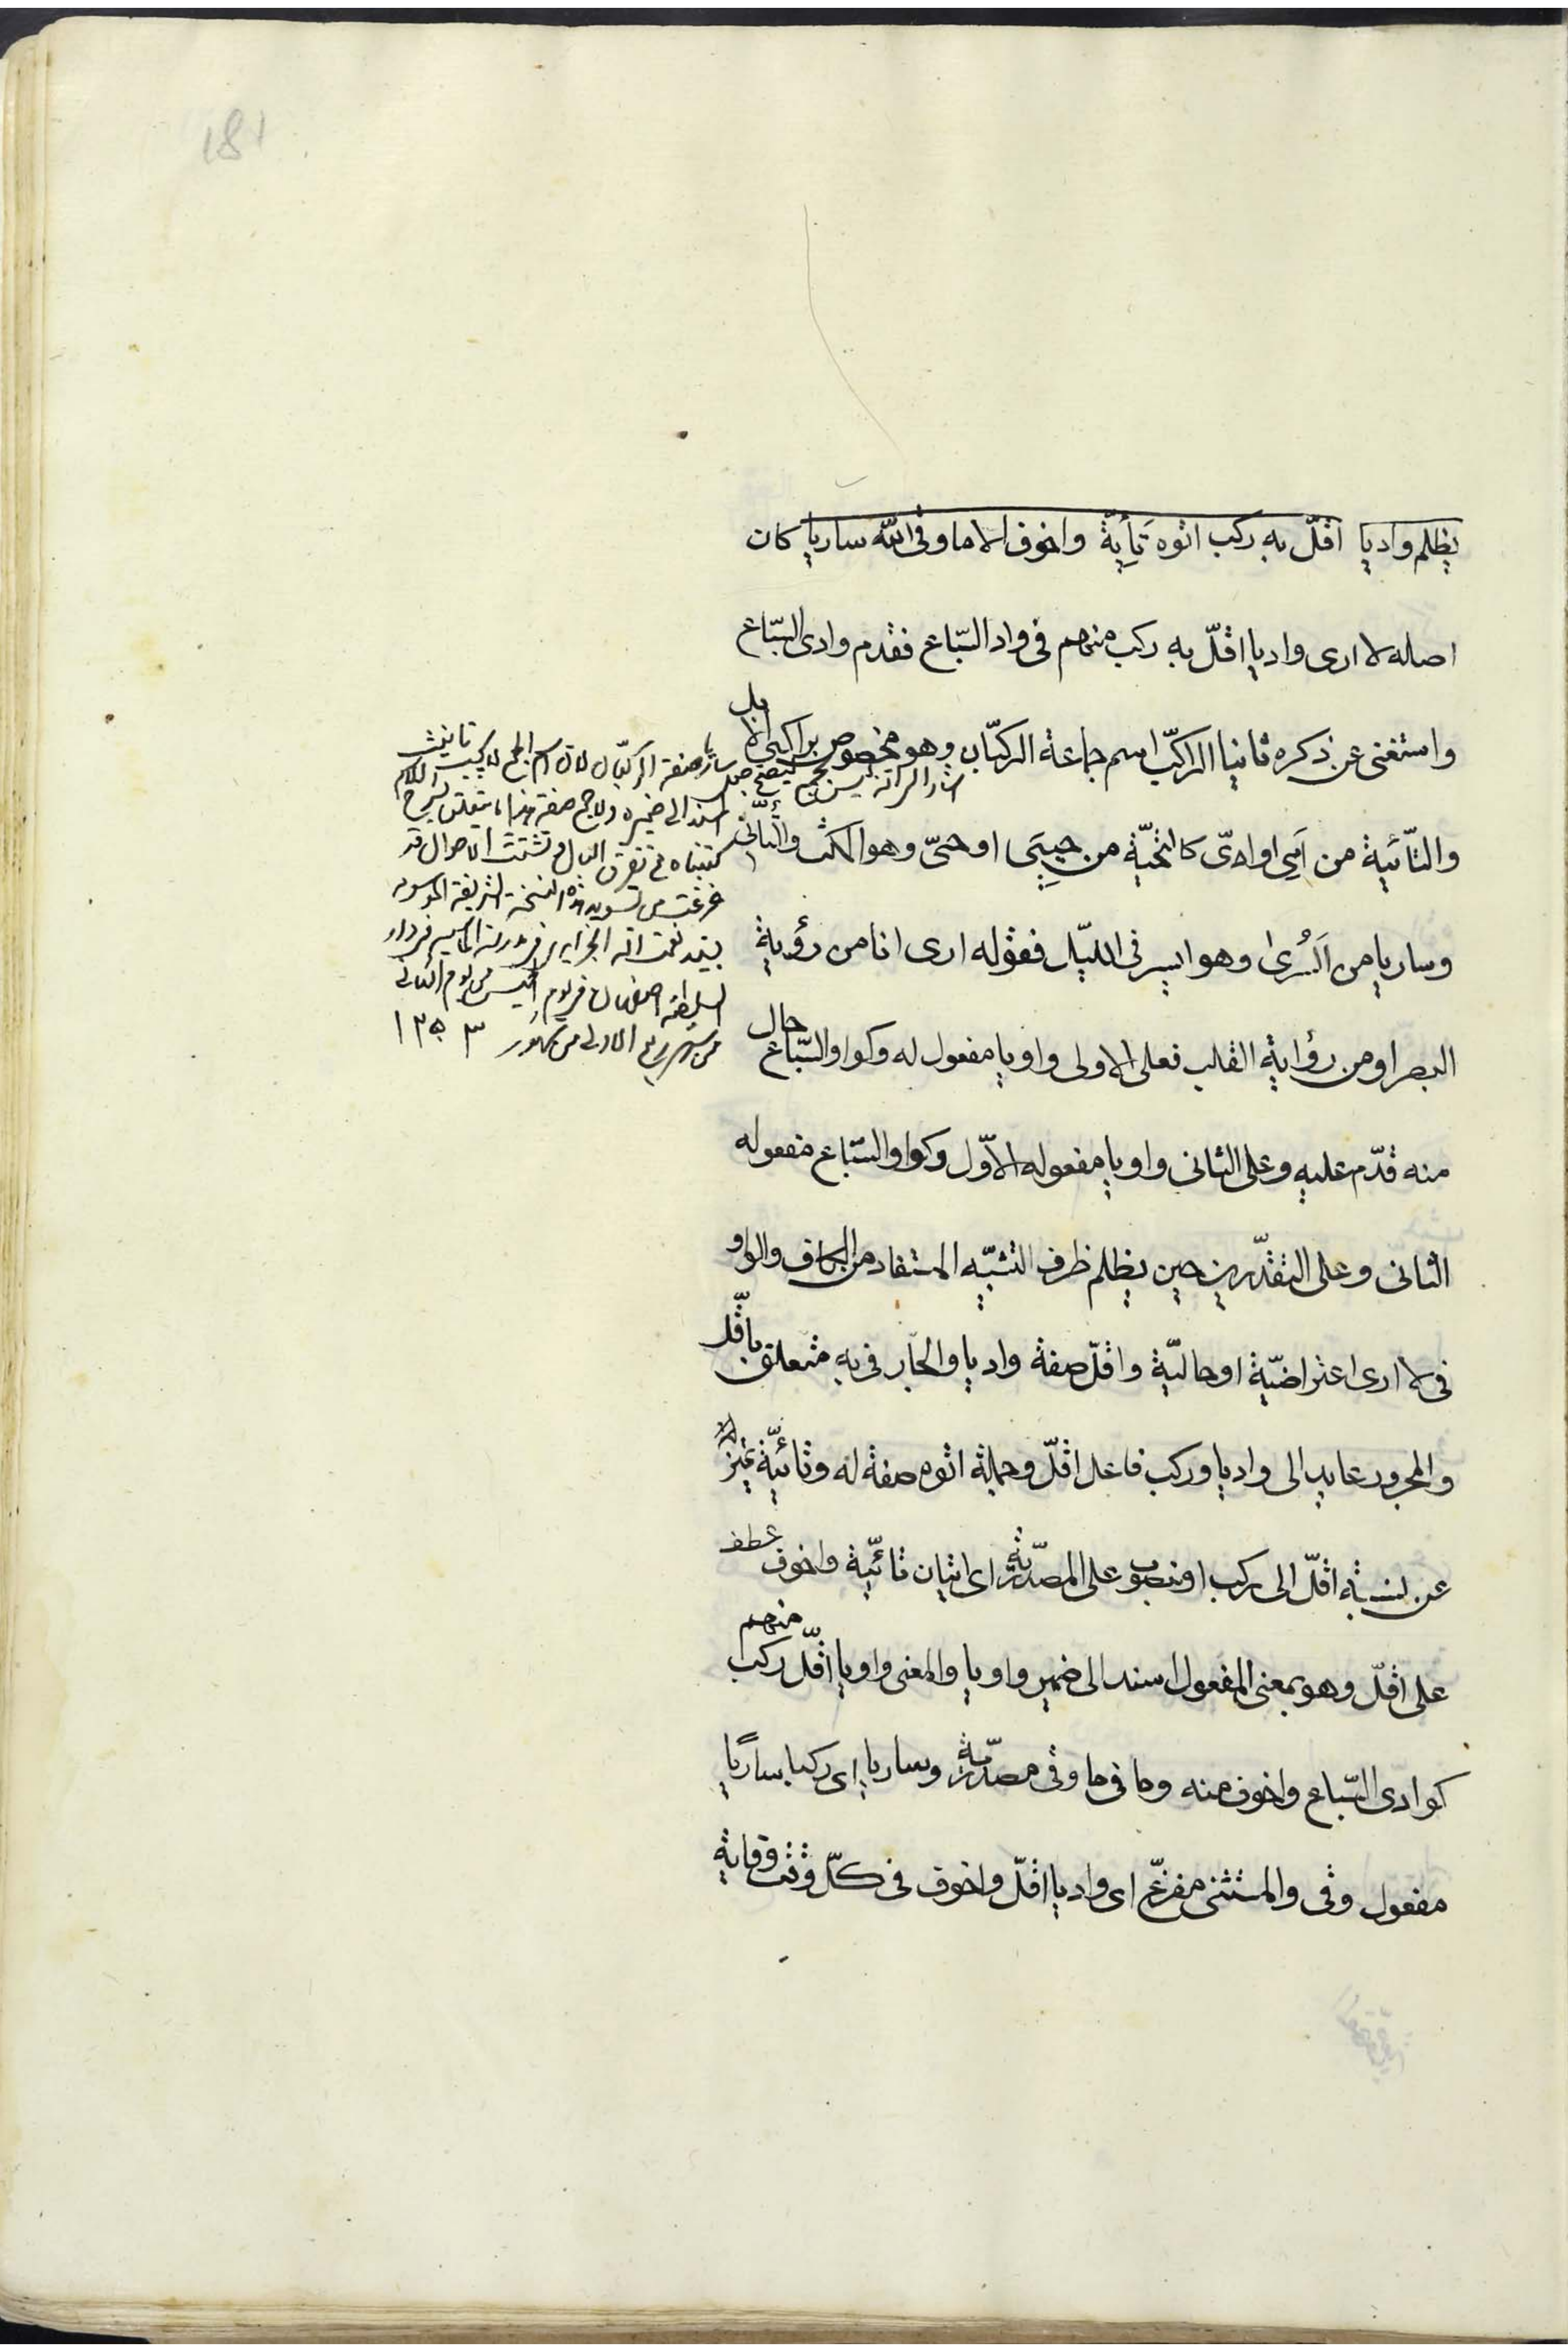 181
يظلم واديا اقلّ به ركب اتوه تَأيِيةً واخوف الا ما وقى الله ساريا كان
اصله لا ارى واديا اقلّ به ركب منهم فى واد السّباع فقدم وادى السّباع
واستغنى عن ذكره ثانيا الركب اسم جماعة الركبّان وهو مخصوص براكبى الابل
والتّائية من اَيى او ادىّ كالتحيّة من حيِيَى او حىّ وهو المكث والتّأنّى
وساريا من السُرى وهو السير فى الليّل فقوله ارى انا من رؤية
البصر او من رؤاية القلب فعلى الاولى واويا مفعول له وكواو السّباع حال
منه قدّم عليه وعلى الثانى واويا مفعوله الاوّل وكواو السّباع مفعوله
الثانى وعلى التقدّرين حين يظلم ظرف التشبّيه المستفاد من الكاف والواو
فى لا ارى اعتراضيّة او حاليّة واقلّ صفة واديا والجار فى به متعلق باقّل
والمجرور عايد الى واديا وركب فاعل اقلّ وجملة اتوه صفة له وتائيّة تميز
عن نسبة اقلّ الى ركب او منصوب على المصدّرية اى اتيان تائيّة واخوف عطف
على اقلّ وهو بمعنى المفعول اسند الى ضمير واويا والمعنى واويا اقلّ ركب منهم
كوادى السّباع واخوف منه وما فى ما وقى مصدّرية وساريا اى ركبا ساريًا
مفعول وقى والمستثنى مفرّغ اى واديا اقلّ واخوف فى كلّ وقت وقاية
ساريا صفة الركبّان لان اسم الجمع كركب تانيث
اشار الى انه ليس بجمع فيصح جعل
اسند الى ضميره ولا جمع صفة هذا ما يتعلق بشرح الكلام
كتبناه مع تفرق البال وتشتت الاحوال قد
فرغت من تسويد هذه النسخة الشريفة الموسومه
بسيد نعمت الله الجزايرى فى مدرسة الماسيه فى دار
السلطنه اصفهان فى يوم الخميس من يوم الثالى
من شهر ربيع الاولى من شهور ١٢٥٣